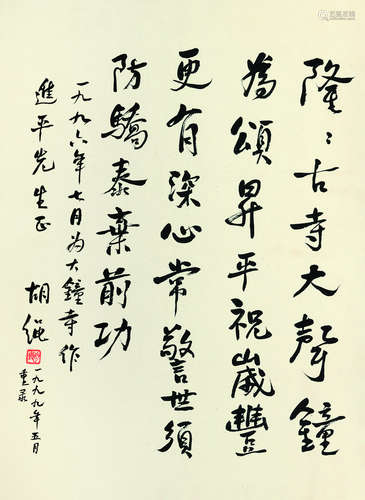 隆：古寺大聲鐘
為頌昇平祝歲豐
更有深心常警世須
防驕泰棄前功
一九九六年七月为大鐘寺作
進平先生正
胡绳
一九九九年五月
重录